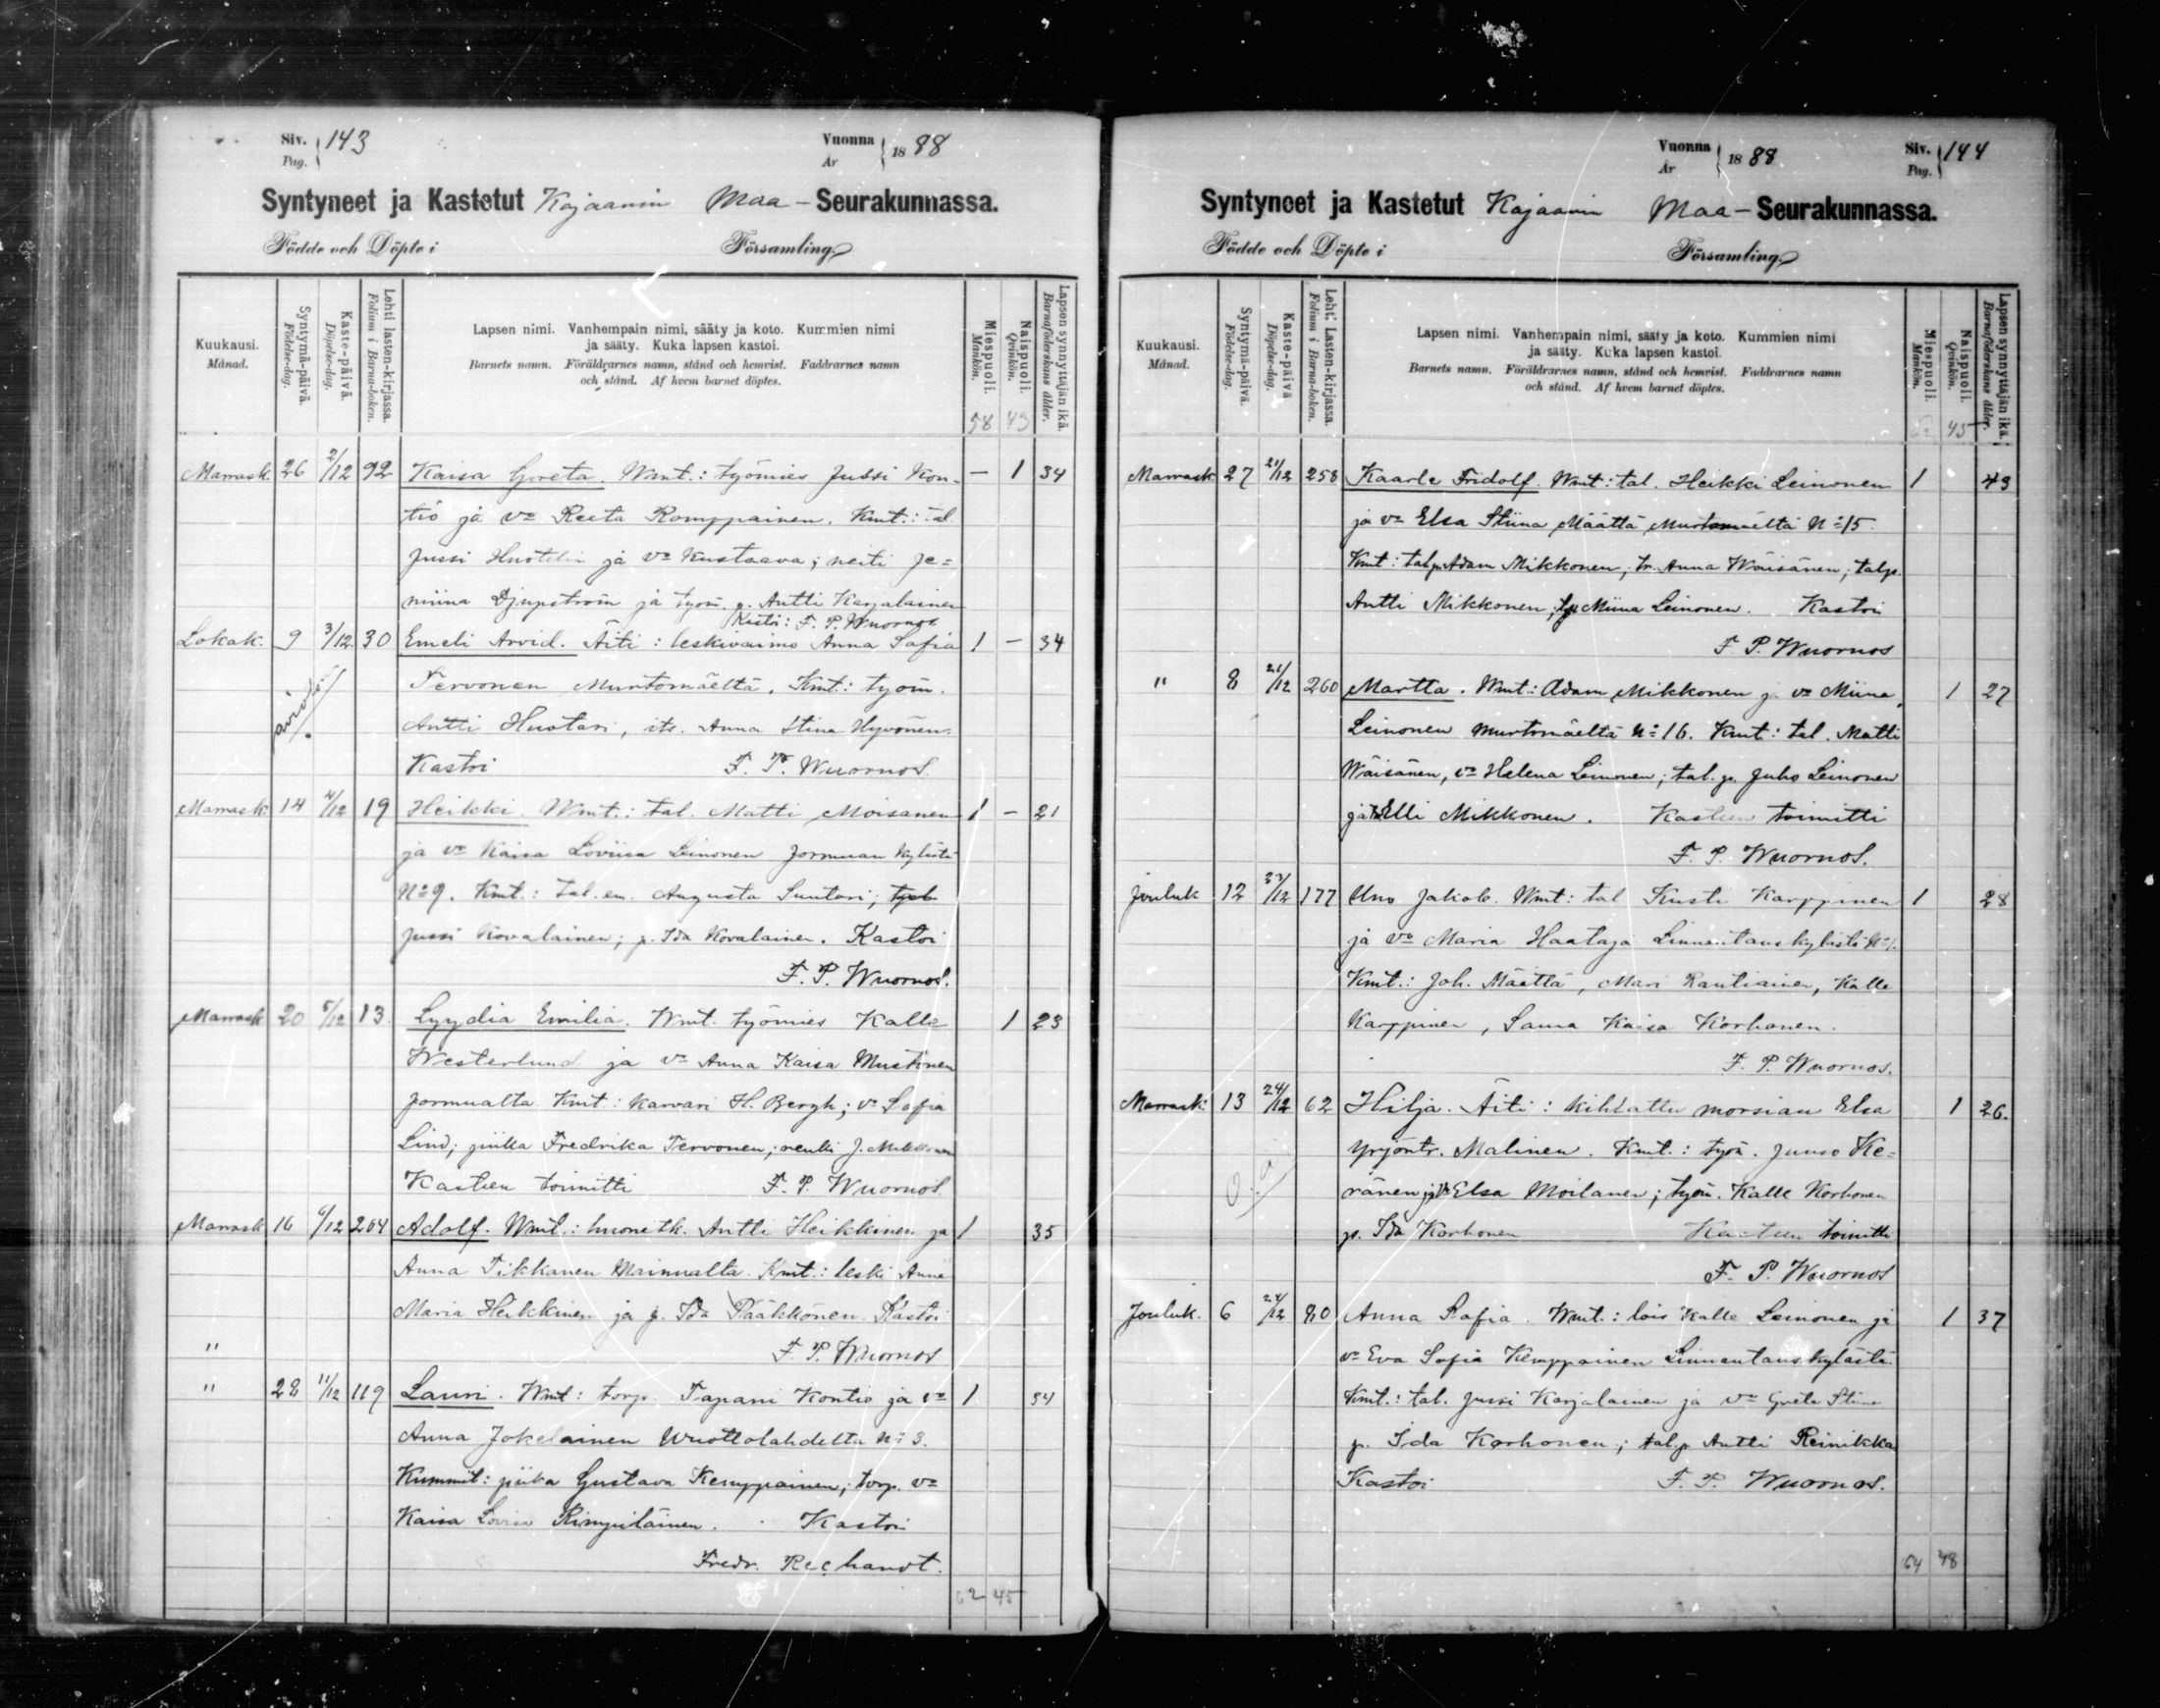 Siv. 143
Pag.
Vuonna 1888
År
Syntyneet ja Kastetut Kajaanin Maa-Seurakunnassa.
Födde och Döpte i Församling
Kuukausi.
Månad.
Syntymä-päivä.
Födelse-dag.
Kaste-päivä.
Döpelse-dag.
Lehti lasten-kirjassa.
Folium i Barna-boken.
Lapsen nimi. Vanhempain nimi, sääty ja koto. Kummien nimi
ja sääty. Kuka lapsen kastoi.
Barnets namn. Föräldrarnes namn, stånd och hemvist. Faddrarnes namn
och stånd. Af hvem barnet döptes.
Miespuoli.
Mankön.
Naispuoli.
Qvinkön.
Lapsen synnyttäjän ikä.
Barnaföderskans ålder.
58 43
Marrask. 26 2/12 92 Kaisa Greta. Wmt.: työmies Jussi Kon- — 1 34
tio ja vo Reeta Romppainen. Kmt.: tal.
Jussi Huotelin ja vo Kustaava; neiti Je=
niina Djupström ja työm. p. Antti Karjalainen
Kastoi: F. P. Wuornos
Lokak. 9 3/12 30 Emeli Arvid. Äiti: leskivaimo Anna Sofia 1 — 34
Tervonen Murtomäeltä. Kmt.: työm.
Antti Huotari, its. Anna Stina Hyvönen.
Kastoi F. P. Wuornos
Marrask. 14 4/12 19 Heikki. Wmt.: tal. Matti Moisanen 1 — 21
ja vo Kaisa Loviisa Leinonen Jormuan kylästä
No 9. Kmt.: tal. em. Augusta Suutari;
Jussi Kovalainen; p. Ida Kovalainen. Kastoi
F. P. Wuornos.
Marrask 20 5/12 13 Lyydia Emilia. Wmt. työmies Kalle 1 23
Westerlund ja vo Anna Kaisa Mustonen
Jormualta. Kmt.: karvari H. Bergh; vo Sofia
Lind; piika Fredrika Tervonen; renki J. Mikkonen
Kasteen toimitti F. P. Wuornos.
Marrask 16 6/12 204 Adolf. Wmt.: huonetk. Antti Heikkinen ja 1 35
Anna Tikkanen Mainualta. Kmt.: leski Anna
Maria Heikkinen ja p. Ida Pääkkönen. Kastoi
" F. P. Wuornos
" 28 11/12 119 Lauri. Wmt: torp. Tapani Kontio ja vo 1 34
Anna Jokelainen Wuottolahdelta No 3.
Kummit: piika Gustava Kemppainen; torp. vo
Kaisa Lovisa Rimpiläinen. Kastoi
Fredr. Rechardt.
62 45
Vuonna 1888
År
Siv. 144
Pag.
Syntyneet ja Kastetut Kajaanin Maa-Seurakunnassa.
Födde och Döpte i Församling
Kuukausi.
Månad.
Syntymä-päivä.
Födelse-dag.
Kaste-päivä
Döpelse-dag.
Lehti Lasten-kirjassa.
Folium i Barna-boken.
Lapsen nimi. Vanhempain nimi, sääty ja koto. Kummien nimi
ja sääty. Kuka lapsen kastoi.
Barnets namn. Föräldrarnes namn, stånd och hemvist. Faddrarnes namn
och stånd. Af hvem barnet döptes.
Miespuoli.
Mankön.
Naispuoli.
Qvinkön.
Lapsen synnyttäjän ikä.
Barnaföderskans ålder.
45
Marrask 27 21/12 258 Kaarle Fridolf. Wmt: tal. Heikki Leinonen 1 43
ja vo Elsa Stiina Määttä Murtomäeltä No 15.
Kmt: talp. Adam Mikkonen, tr. Anna Wäisänen; talp.
Antti Mikkonen; Miina Leinonen. Kastoi
F. P. Wuornos
" 8 21/12 260 Martta. Wmt: Adam Mikkonen ja vo Miina 1 27
Leinonen Murtomäeltä No 16. Kmt: tal. Matti
Wäisänen, vo Helena Leinonen; tal. p. Juho Leinonen
ja Elli Mikkonen. Kasteen toimitti
F. P. Wuornos.
Jouluk 12 23/12 177 Uno Jakob. Wmt: tal Kusti Karppinen 1 28
ja vo Maria Haataja Linnantaus kylästä No 1.
Kmt.: Joh. Määttä, Mari Rautiainen, Kalle
Karppinen, Sanna Kaisa Korhonen.
F. P. Wuornos.
Marrask: 13 24/12 62 Hilja. Äiti: kihlattu morsian Elsa 1 26.
Yrjöntr. Malinen. Kmt.: työm. Junso Ke=
ränen ja vo Elsa Moilanen; työm. Kalle Korhonen
p. Ida Korhonen Kasteen toimitti
F. P. Wuornos
Jouluk. 6 24/12 80 Anna Sofia. Wmt.: lois Kalle Leinonen ja 1 37
vo Eva Sofia Kemppainen Linnantaus kylästä.
Kmt.: tal. Jussi Karjalainen ja vo Greta Stina
p. Ida Korhonen; tal. p. Antti Reinikka
Kastoi F. P. Wuornos.
64 48